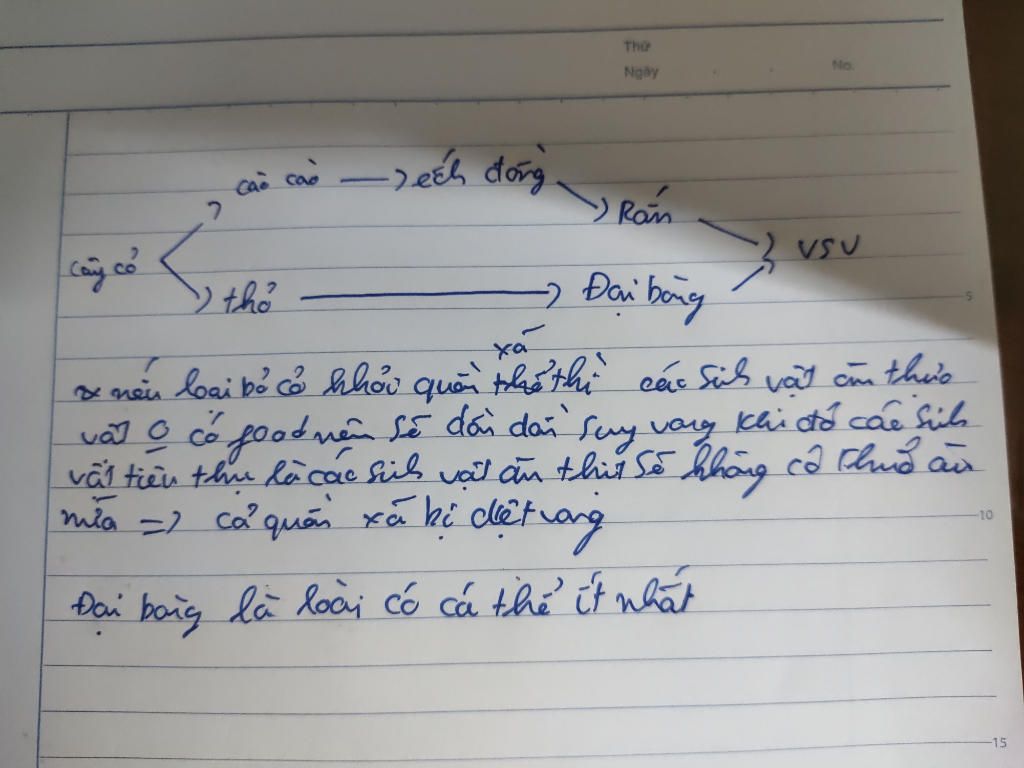 Thứ
Ngày No.
cào cào → ếch đồng
Rắn
cây cỏ VSV
thỏ → Đại bàng
5
xã
* nếu loại bỏ cỏ khỏi quần thể thì các sinh vật ăn thực
vật 0 có food nên sẽ dần dần suy vong khi đó các sinh
vật tiêu thụ là các sinh vật ăn thịt sẽ không có thức ăn
nữa => cả quần xã bị diệt vong
10
Đại bàng là loài có cá thể ít nhất
15